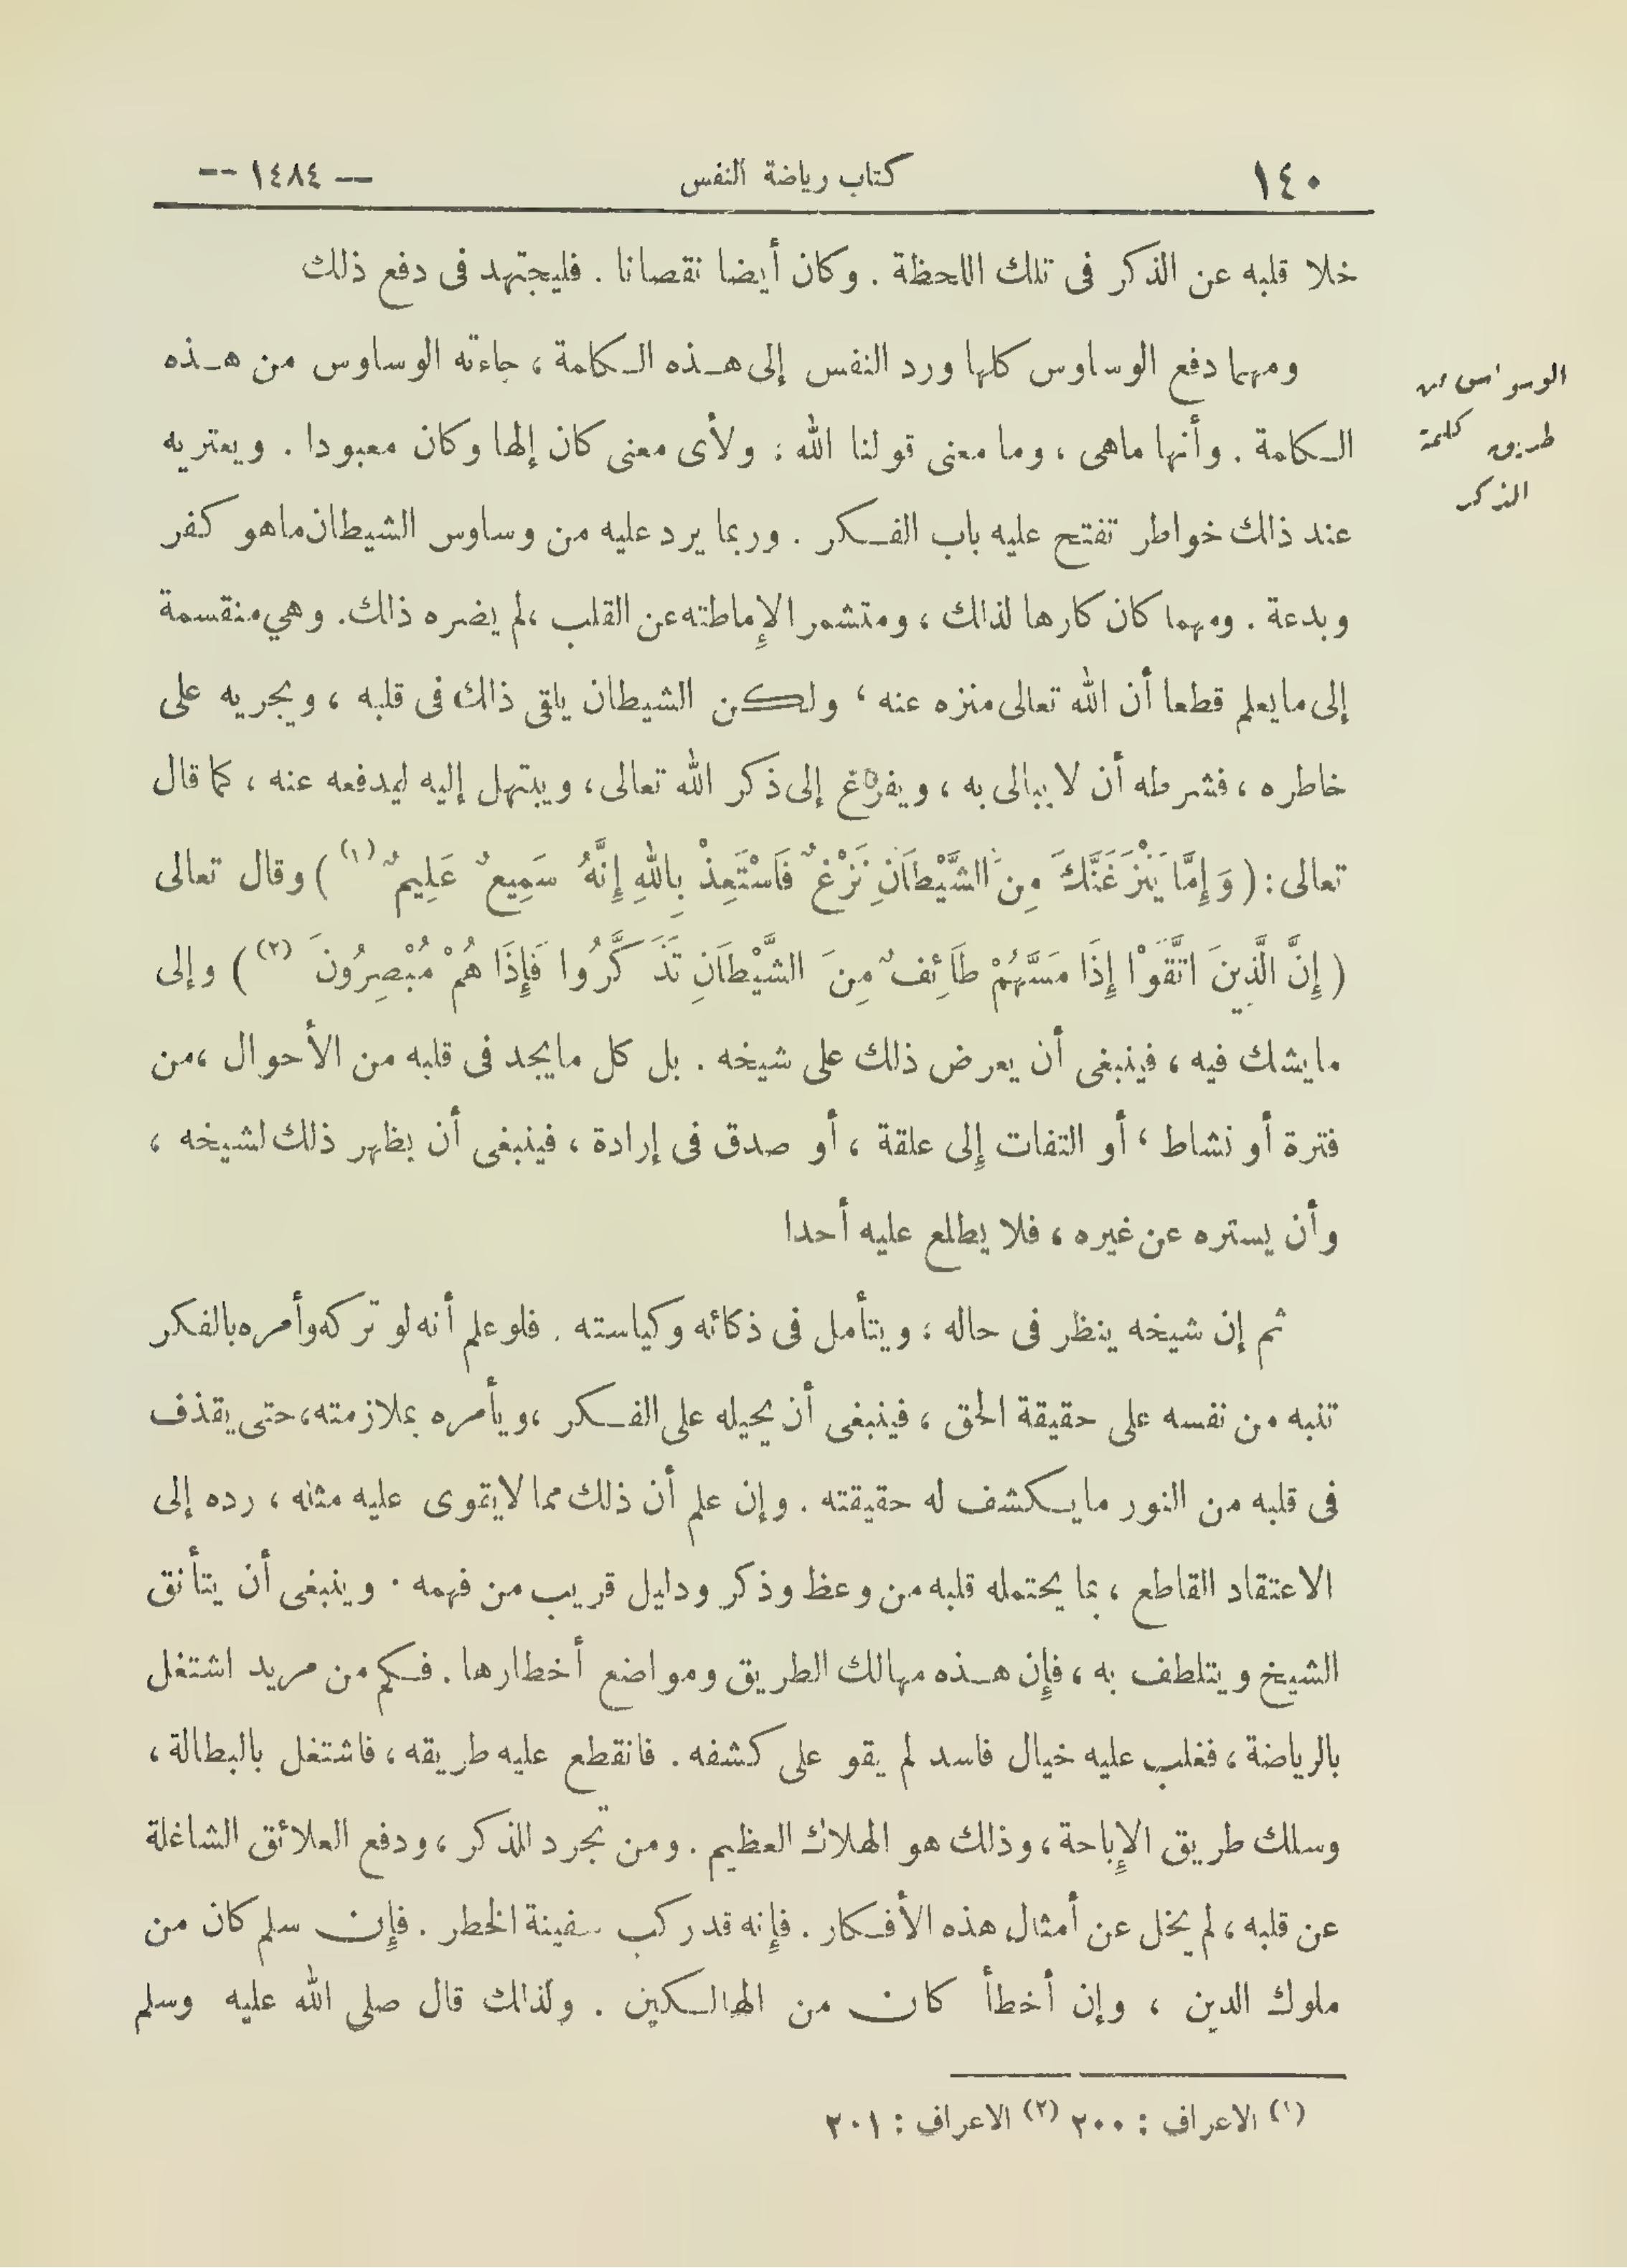 ١٤٠ كتاب رياضة النفس — ١٤٨٤ —
خلا قلبه عن الذكر فى تلك اللحظة . وكان أيضا نقصانا . فليجتهد فى دفع ذلك
ومهما دفع الوساوس كلها ورد النفس إلى هـذه الـكلمة ، جاءته الوساوس من هـذه
الـكلمة . وأنها ماهى ، وما معنى قولنا الله ؛ ولأى معنى كان إلها وكان معبودا . ويعتريه
عند ذلك خواطر تفتح عليه باب الفـكر . وربما يرد عليه من وساوس الشيطان ماهو كفر
وبدعة . ومهما كان كارها لذلك ، ومتشمر الإماطته عن القلب ، لم يضره ذلك . وهي منقسمة
إلى مايعلم قطعا أن الله تعالى منزه عنه ، ولكن الشيطان يلقى ذلك فى قلبه ، ويجريه على
خاطره ، فشرطه أن لا يبالى به ، ويفزع إلى ذكر الله تعالى ، ويبتهل إليه ليدفعه عنه ، كما قال
تعالى : ( وَإِمَّا يَنْزَغَنَّكَ مِنَ الشَّيْطَانِ نَزْغٌ فَاسْتَعِذْ بِاللهِ إِنَّهُ سَمِيعٌ عَلِيمٌ (١) ) وقال تعالى
( إِنَّ الَّذِينَ اتَّقَوْا إِذَا مَسَّهُمْ طَائِفٌ مِنَ الشَّيْطَانِ تَذَكَّرُوا فَإِذَا هُمْ مُبْصِرُونَ (٢) ) وإلى
مايشك فيه ، فينبغى أن يعرض ذلك على شيخه . بل كل مايجد فى قلبه من الأحوال ، من
فترة أو نشاط ، أو التفات إلى علقة ، أو صدق فى إرادة ، فينبغى أن يظهر ذلك لشيخه ،
وأن يستره عن غيره ، فلا يطلع عليه أحدا
ثم إن شيخه ينظر فى حاله ؛ ويتأمل فى ذكائه وكياسته . فلو علم أنه لو تركه وأمره بالفكر
تنبه من نفسه على حقيقة الحق ، فينبغى أن يحيله على الفـكر ، ويأمره بملازمته ، حتى يقذف
فى قلبه من النور مايـكشف له حقيقته . وإن علم أن ذلك مما لايقوى عليه مثله ، رده إلى
الاعتقاد القاطع ، بما يحتمله قلبه من وعظ وذكر ودليل قريب من فهمه . وينبغى أن يتأنق
الشيخ ويتلطف به ، فإن هـذه مهالك الطريق ومواضع أخطارها . فـكم من مريد اشتغل
بالرياضة ، فغلب عليه خيال فاسد لم يقو على كشفه . فانقطع عليه طريقه ، فاشتغل بالبطالة ،
وسلك طريق الإباحة ، وذلك هو الهلاك العظيم . ومن تجرد للذكر ، ودفع العلائق الشاغلة
عن قلبه ، لم يخل عن أمثال هذه الأفـكار . فإنه قد ركب سفينة الخطر . فإن سلم كان من
ملوك الدين ، وإن أخطأ كان من الهالـكين . ولذلك قال صلى الله عليه وسلم
الوسواس من
طريق كلمة
الذكر
(١) الاعراف : ٢٠٠ (٢) الاعراف : ٢٠١